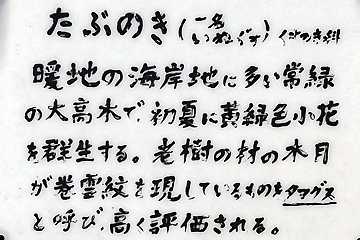 たぶのき(一名 いぬぐす) くすのき科
暖地の海岸地に多い常緑
の大高木で、初夏に黄緑色小花
を群生する。老樹の材の木目
が巻雲紋を現しているものをタマグス
と呼び、高く評価される。